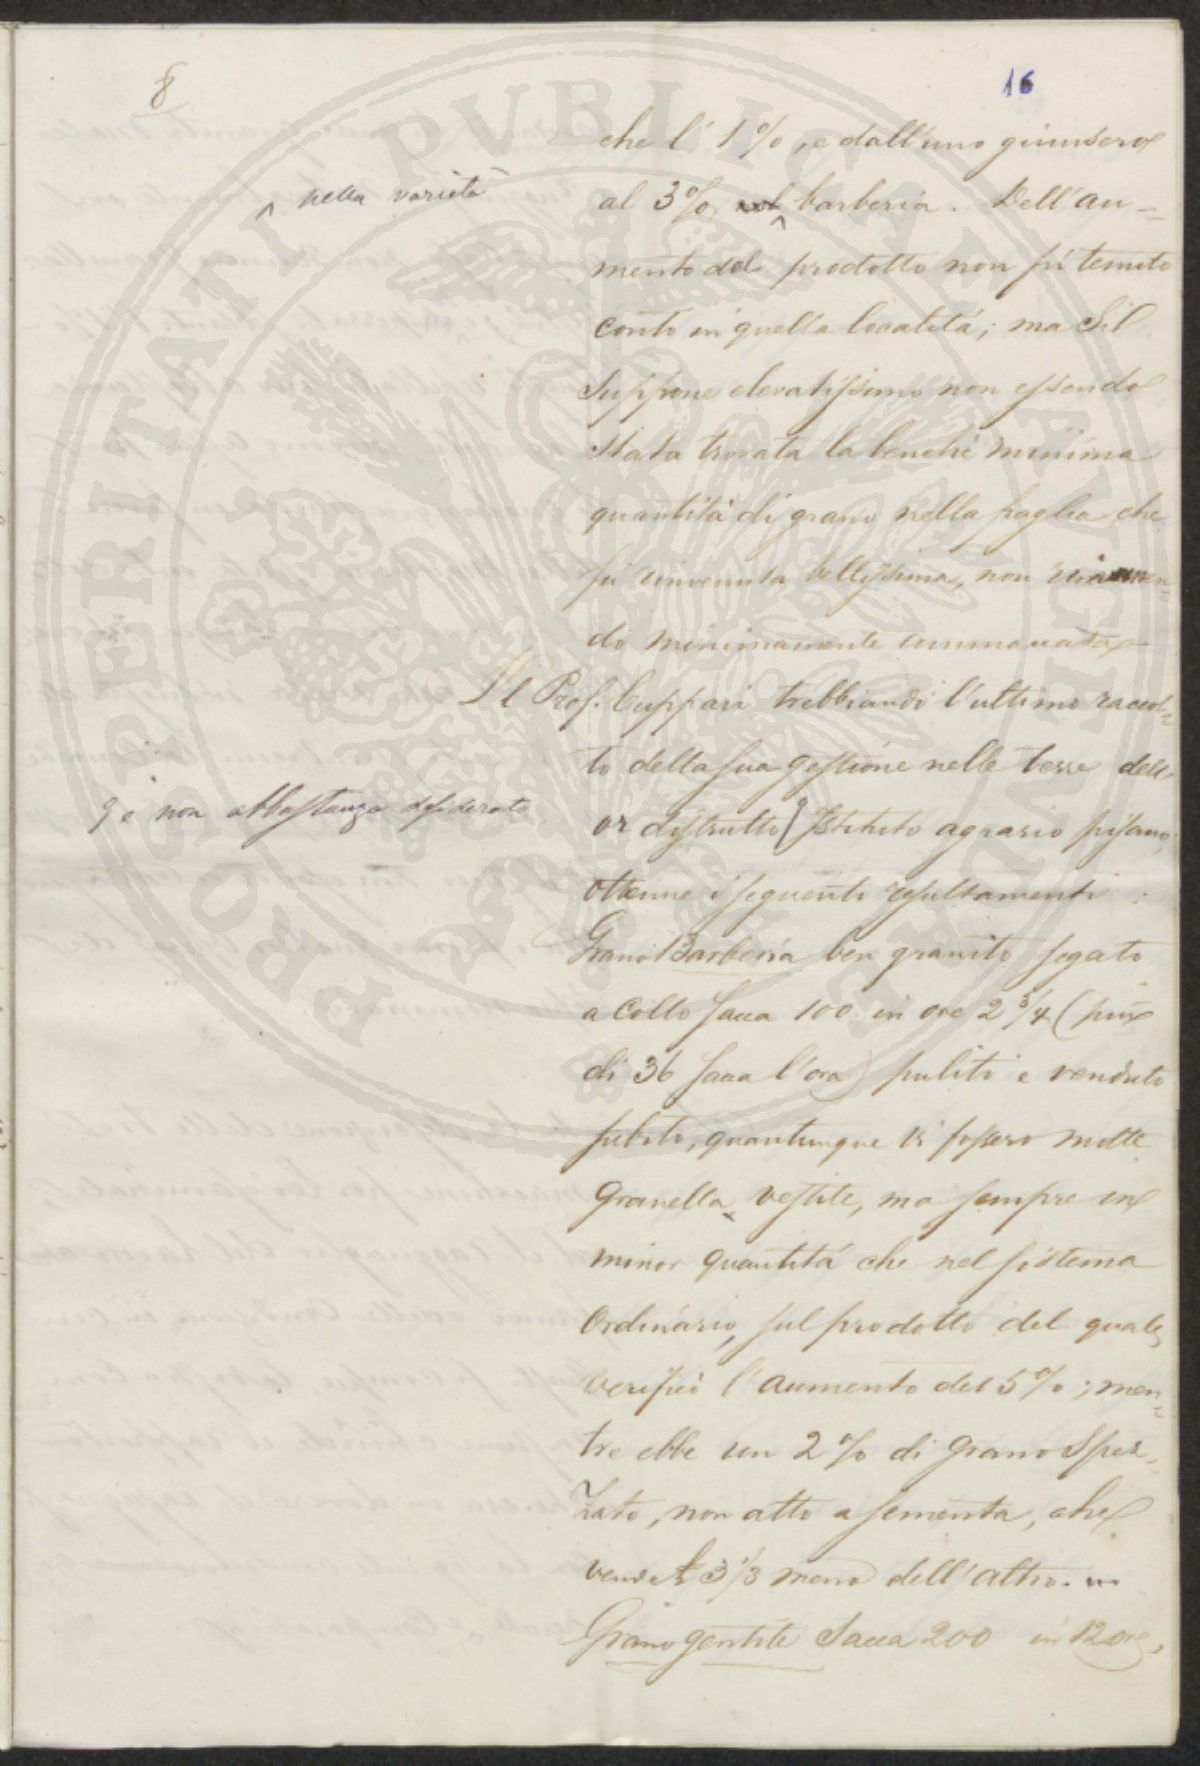 8
16
che l' 1 %, e dall'uno giunsero
^ nella varietà
al 3% nel ^ barberia. Dell'au=
mento del prodotto non fù tenuto
conto in quella localitá; ma Si
Suppone elevatissimo non essendo
stata trovata la benchè minima
quantità di grano nella paglia che
fù rinvenuta bellissima, non
do minimamente ammaccata
Il Prof. Cuppari trebbiando l'ultimo raccol=
to della sua gestione nelle terre dell'
e non abbastanza desiderato
or distrutto Istituto agrario pisano,
ottenne i seguenti resultamenti:
Grano Barberia ben granito segato
a Collo sacca 100 in ore 2 3/4 (più
di 36 sacca l'ora) puliti e venduto
subito, quantunque vi fossero molte
Granella vestite, ma sempre in
minor quantitá che nel sistema
Ordinario, sul prodotto del quale
verificò l'aumento del 5%; men=
tre ebbe un 2 % di grano Spez=
zato, non atto a sementa, che
vendè 3 1/3 meno dell'altro.
Grano gentile Sacca 200 in 12 ore,
PROSPERITATI PVBLICAE AVGENDAE